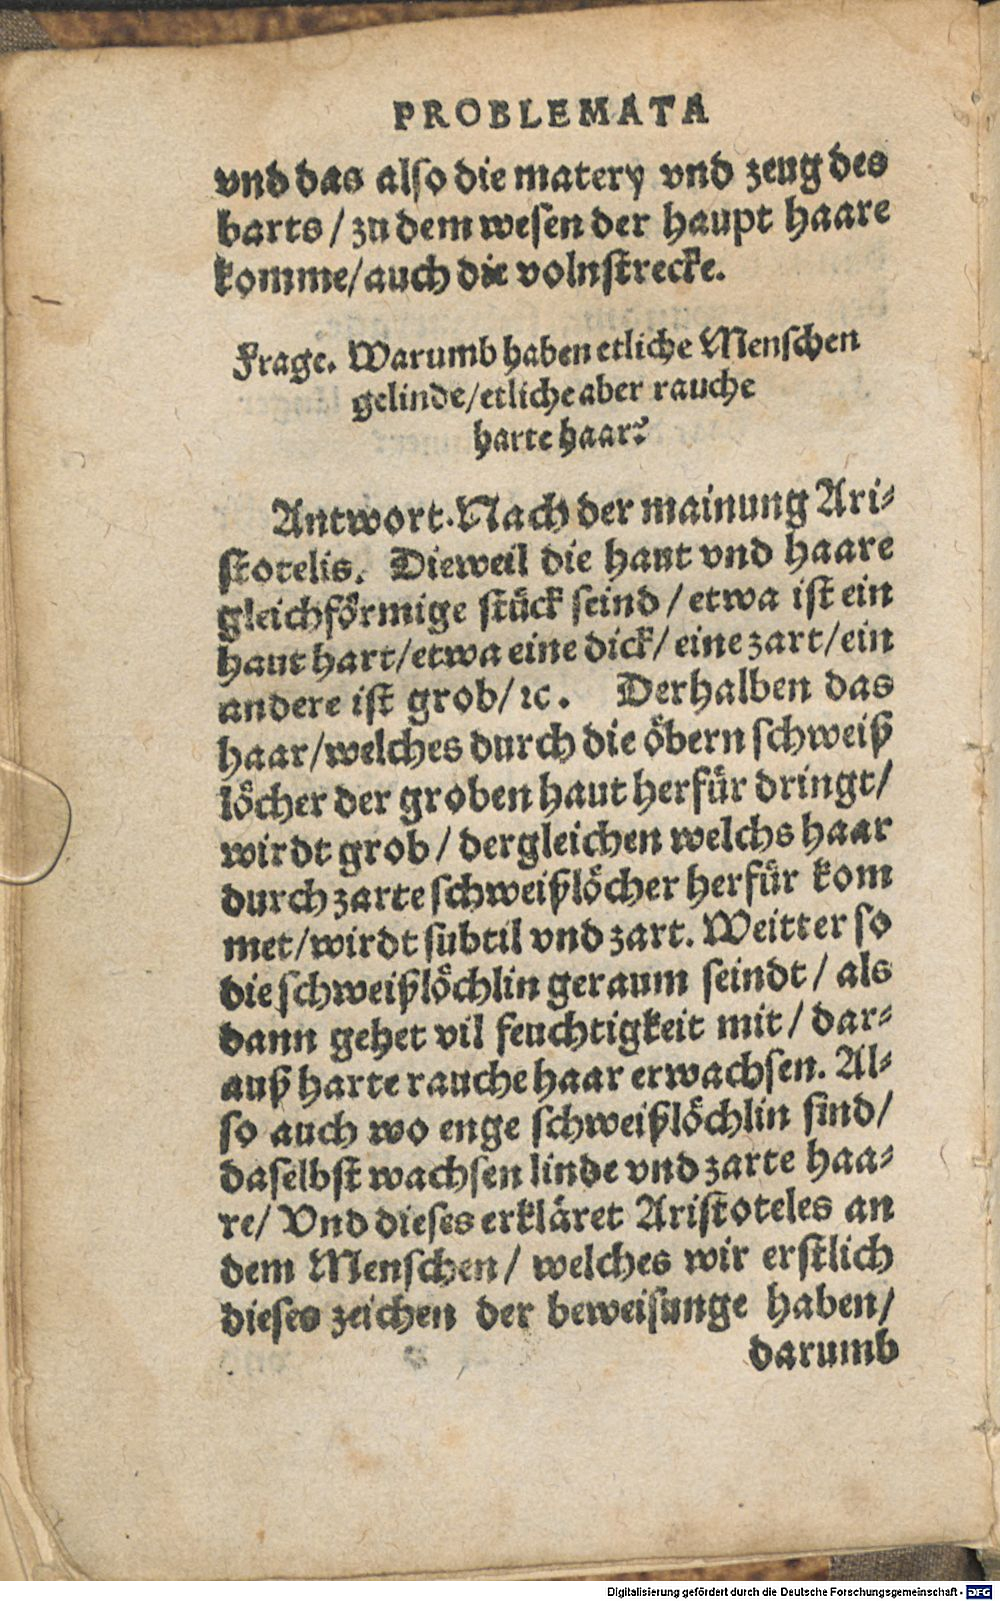 PROBLEMATA
vnd das also die matery vnd zeug des
barts / zu dem wesen der haupt haare
komme/auch die volnstrecke.
Frage. Warumb haben etliche Menschen
gelinde/etliche aber rauche
harte haar?
Antwort. Nach der mainung Ari-
stotelis. Dieweil die haut vnd haare
gleichförmige stück seind / etwa ist ein
haut hart/etwa eine dick/ eine zart/ein
andere ist grob/ ꝛc. Derhalben das
haar/welches durch die öbern schweiß
löcher der groben haut herfür dringt/
wirdt grob / dergleichen welchs haar
durch zarte schweißlöcher herfür kom
met/wirdt subtil vnd zart. Weitter so
die schweißlöchlin geraum seindt / als
dann gehet vil feuchtigkeit mit / dar-
auß harte rauche haar erwachsen. Al-
so auch wo enge schweißlöchlin sind/
daselbst wachsen linde vnd zarte haa-
re/ Vnd dieses erkläret Aristoteles an
dem Menschen / welches wir erstlich
dieses zeichen der beweisunge haben/
darumb
Digitalisierung gefördert durch die Deutsche Forschungsgemeinschaft - DFG